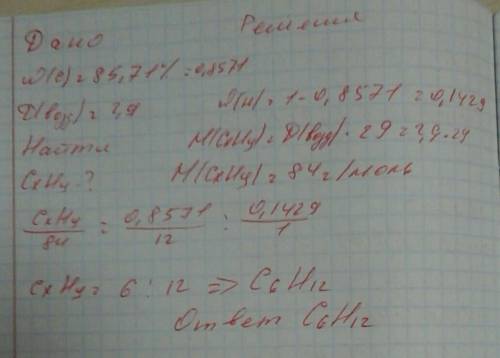 Дано
Решения
ω(C) = 85,71% = 0,8571
D(возд) = 2,9
ω(H) = 1 - 0,8571 = 0,1429
Найти
M(CxHy) = D(возд) · 29 = 2,9 · 29
CxHy - ?
M(CxHy) = 84 г/моль
CxHy/84 = 0,8571/12 : 0,1429/1
CxHy = 6 : 12 => C6H12
Ответ C6H12